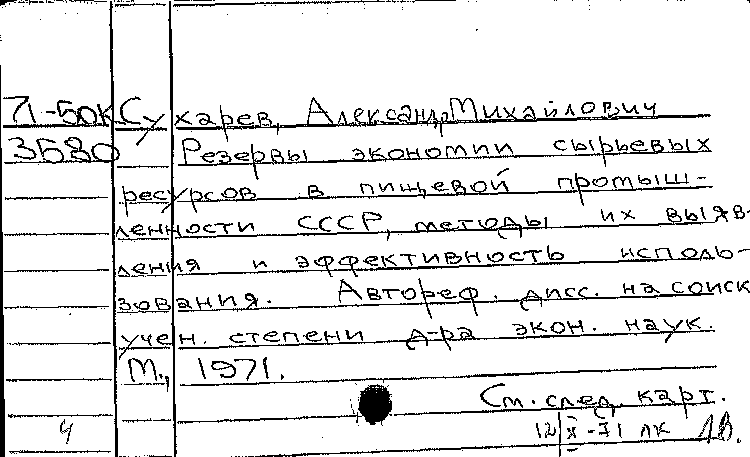 71-50к Сухарев, Александр Михайлович
3580 Резервы экономии сырьевых
ресурсов в пищевой промыш-
ленности СССР, методы их выяв-
ления и эффективность исполь-
зования. Автореф. дисс. на соиск
учен. степени д-ра экон. наук.
М., 1971.
См. след. карт.
4 12/X-71 ЛК